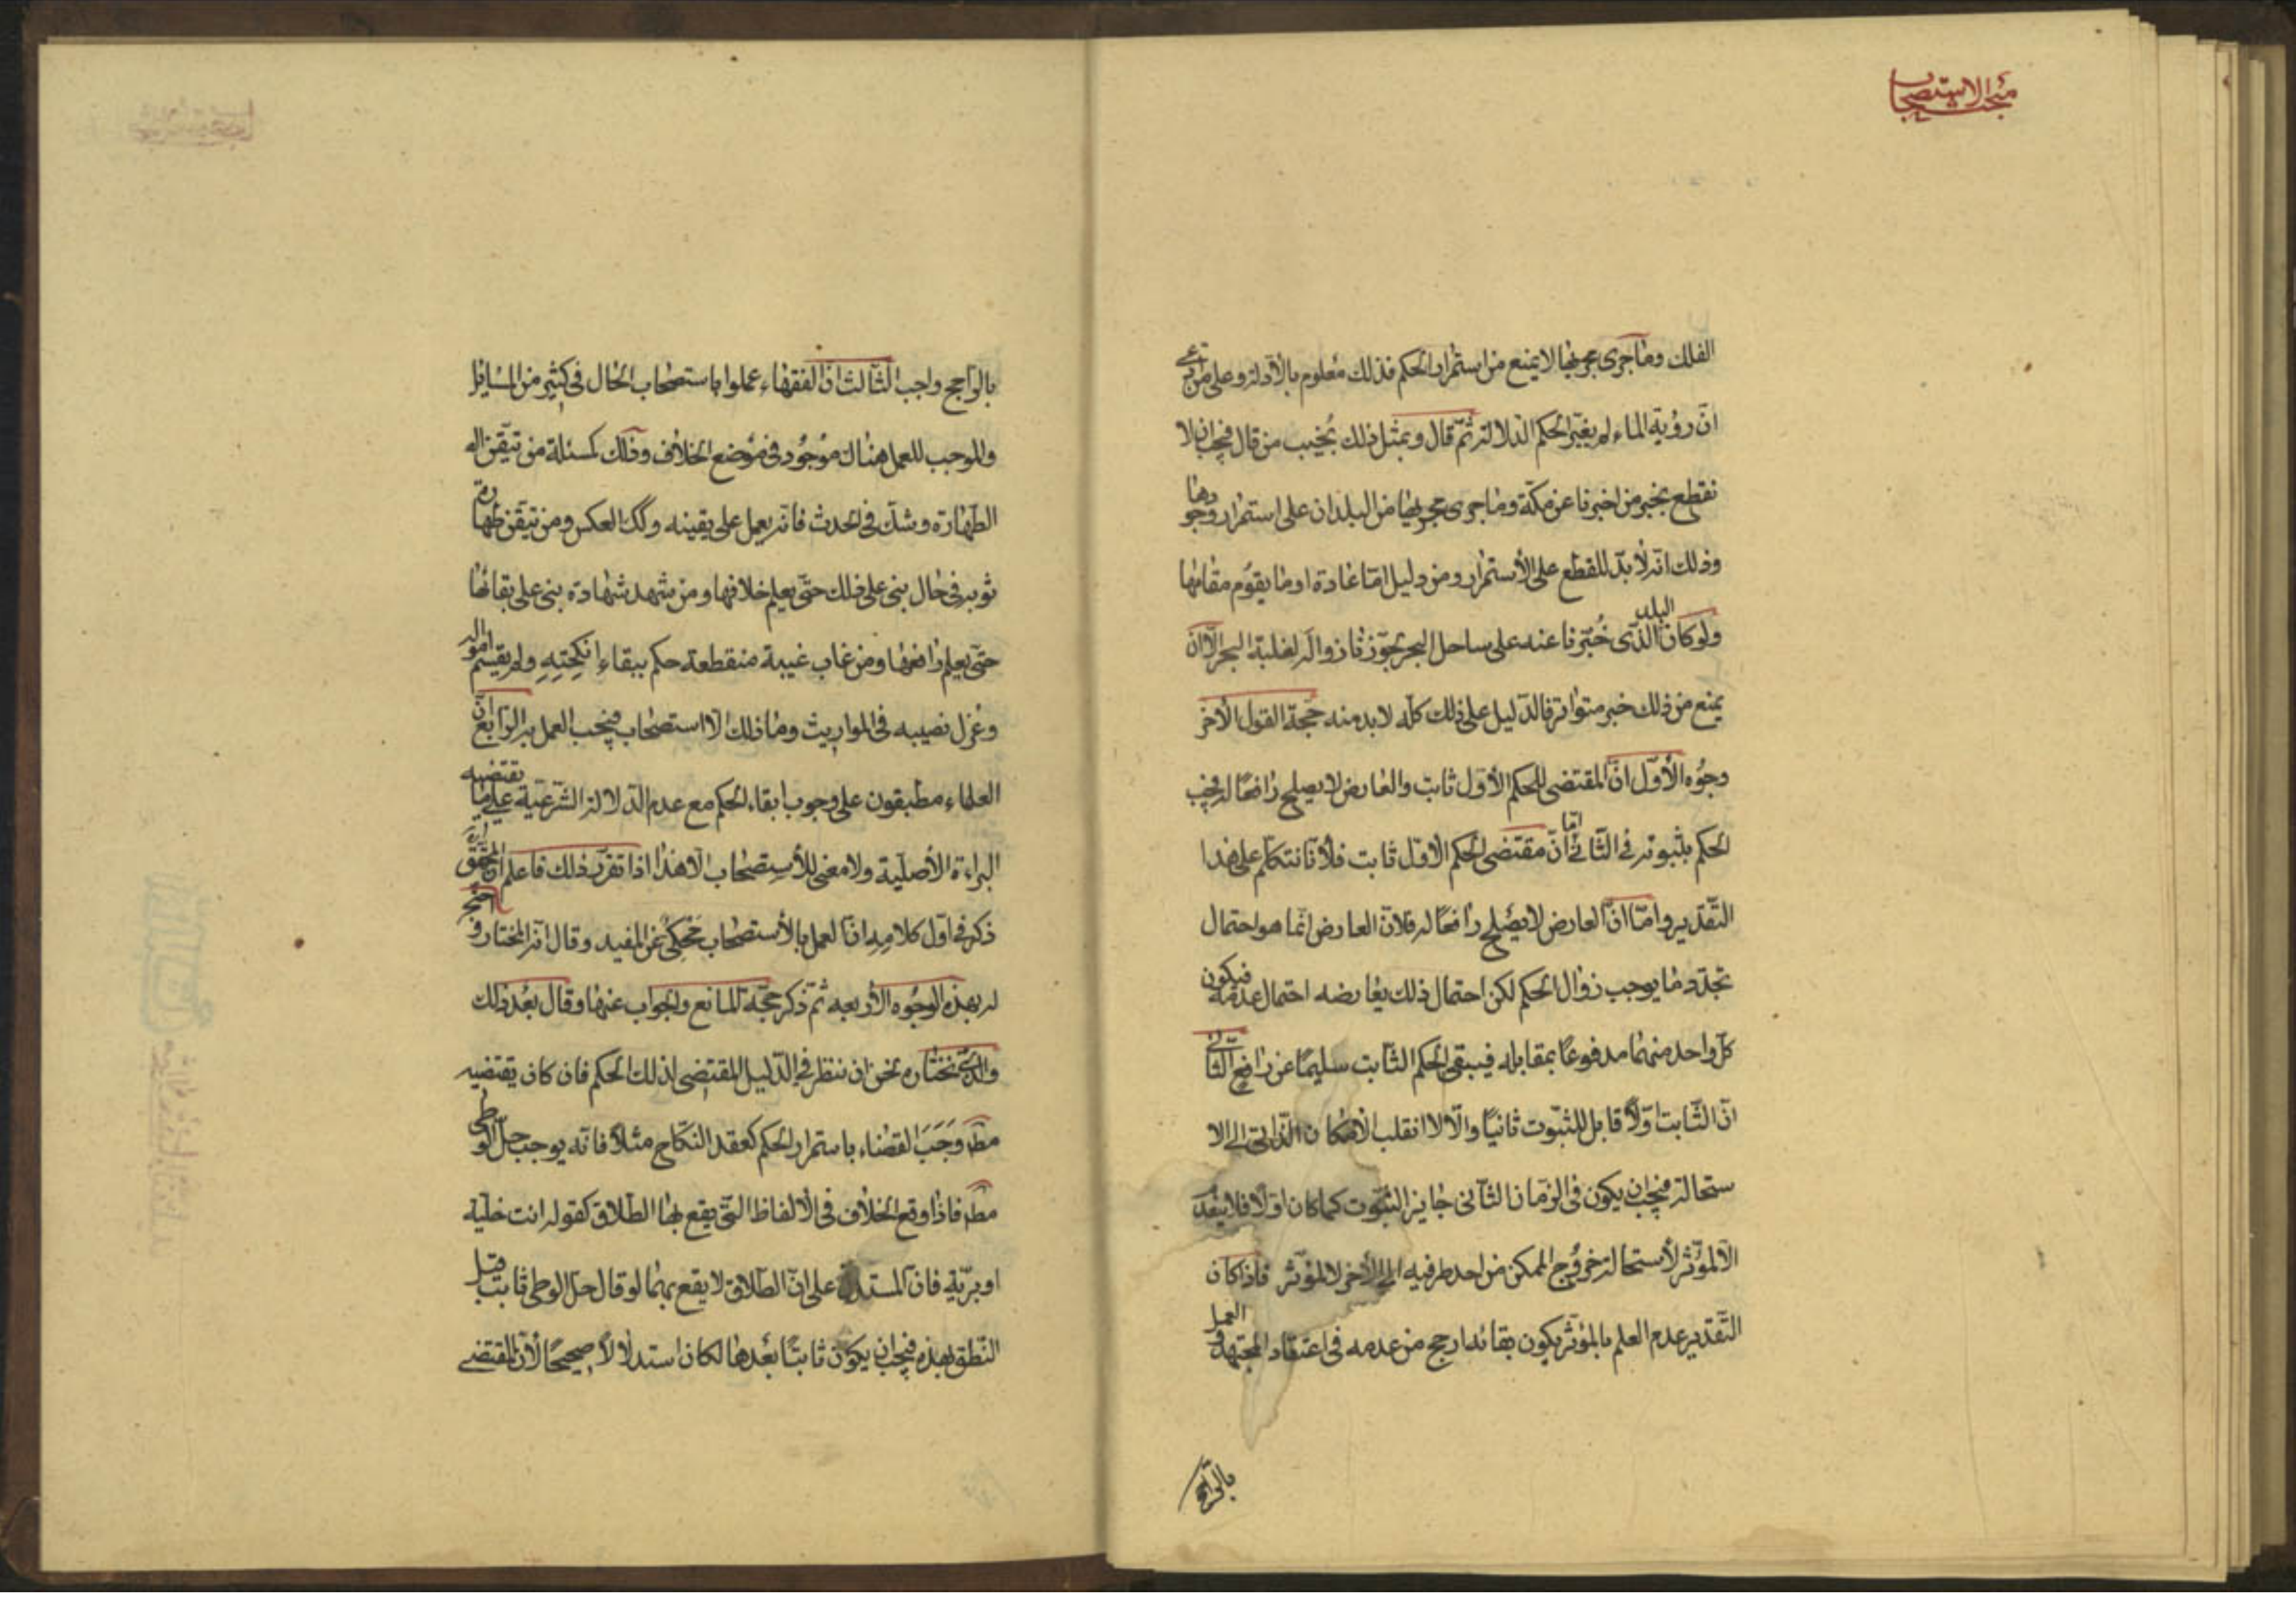 مبحث الاستصحاب
الفلك وما جرى مجراها لا يمنع من استمرار الحكم فذلك معلوم بالادلة وعلى من يدعى
انّ رؤية الماء لم يغيّر الحكم الدلالة ثمّ قال وبمثل ذلك نجيب من قال فيجب ان لا
نقطع بخبر من اخبرنا عن مكّة وما جرى مجريها من البلدان على استمرار وجودها
وذلك انّه لا بدّ للقطع على الأستمرار ومن دليل امّا عادة او ما يقوم مقامها
ولو كان البلد الذى خُبّرنا عنه على ساحل البحر تجوّزنا زواله لغلبة البحر الّا ان
يمنع من ذلك خبر متواتر فالدّليل على ذلك كلّه لا بد منه حجة القول الأخر
وجوه الأوّل انّ المقتضى للحكم الأوّل ثابت والعارض لا يصلح رافعًا له فيجب
الحكم بثبوته فى الثّانى امّا انّ مقتضى الحكم الاوّل ثابت فلأنّا نتكلّم على هذا
التّقدير وامّا انّ العارض لا يصلح رافعًا له فلانّ العارض انّما هو احتمال
تجدّد ما يوجب زوال الحكم لكن احتمال ذلك يعارضه احتمال عدمه فيكون
كلّ واحد منهما مدفوعًا بمقابله فيبقى الحكم الثّابت سليمًا عن رافع الثّانى
انّ الثّابت اوّلًا قابل للثبوت ثانيًا والّا لانقلب الأمكان الذّاتى الى الا
ستحالة فيجب ان يكون فى الزمان الثّانى جايز الثبوت كما كان اوّلًا فلا ينعدم
الّا لمؤثر لأستحالة خروج الممكن من احد طرفيه الى الأخر لا لمؤثر فاذا كان
التّقدير عدم العلم بالمؤثر يكون بقائه ارجح من عدمه فى اعتقاد المجتهد والعمل
بالراجح
بالراجح واجب الثّالث انّ الفقهاء عملوا باستصحاب الحال فى كثير من المسائل
والموجب للعمل هناك موجود فى موضع الخلاف وذلك كمسئلة من تيقّن
الطهارة وشكّ فى الحدث فانّه يعمل على يقينه وكك العكس ومن تيقّن طهارة
ثوبه فى حال بنى على ذلك حتّى يعلم خلافها ومن شهد شهادة بنى على بقائها
حتّى يعلم رافعها ومن غاب غيبة منقطعة حكم ببقاء انكحتِهِ ولم يقسم امواله
وعُزل نصيبه فى المواريث وما ذلك الّا استصحاب فيجب العمل به الرّابع انّ
العلماء مطبقون على وجوب ابقاء الحكم مع عدم الدّلالة الشّرعيّة على ما يقتضيه
البراءة الأصليّة ولا معنى للأستصحاب الّا هذا اذا تقرّر ذلك فاعلم انّ المحقّق
ذكر فى اوّل كلامه انّ العمل بالأستصحاب محكى عن المفيد وقال انّه المختار واحتج
له بهذه الوجوه الأربعه ثمّ ذكر حجّة المانع والجواب عنها وقال بعد ذلك
والذى نختاره نحن ان ننظر فى الدّليل المقتضى لذلك الحكم فان كان يقتضيه
مطم وَجَبَ القضاء باستمرار الحكم كعقد النّكاح مثلًا فانّه يوجب حلّ الوطى
مطم فاذا وقع الخلاف فى الألفاظ التّى يقع بها الطلاق كقوله انت خليّة
او بريّة فانّ المستدل على انّ الطلاق لا يقع بهما لو قال حلّ الوطى ثابت قبل
النّطق بهذه فيجب ان يكون ثابتًا بعدها لكان استدلالًا صحيحًا لأنّ المقتضى